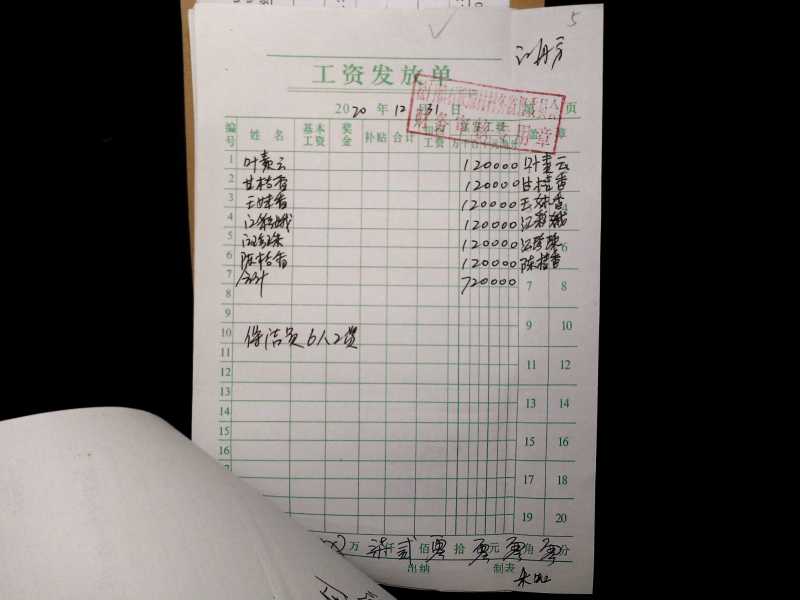 5
工资发放单
2020年12月31日 页
财务 专用章
编号 姓名 基本工资 奖金 补贴 合计 工资 盖章
1 叶素云 120000 叶素云
2 甘桂香 120000 甘桂香
3 王妹香 120000 王妹香
4 江彩娥 120000 江彩娥
5 120000 6
6 陈桂香 120000 陈桂香
7 合计 720000 7 8
8
9 9 10
10 保洁员6人工资
11 11 12
12
13 13 14
14
15 15 16
16
17 18
19 20
万 柒仟贰佰零拾零元零角零分
出纳 制表